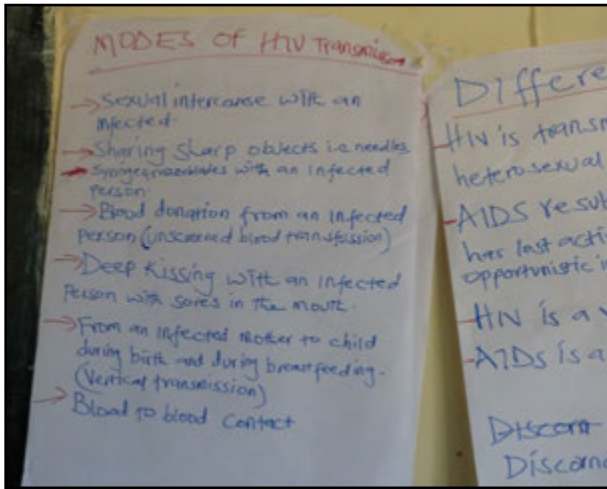 MODES OF HIV Transmission
→ Sexual intercourse with an
infected.
→ Sharing sharp objects i.e needles
with an infected
person.
→ Blood donation from an infected
person (unscreened blood transfission)
→ Deep kissing with an infected
person with sores in the mouth.
→ From an infected mother to child
during birth and during breastfeeding.
(Vertical transmission)
→ Blood to blood contact
Differe
HIV is transm
heterosexual
AIDS resul
has last acti
opportunistic i
HIV is a v
AIDs is a
Discor
Discor